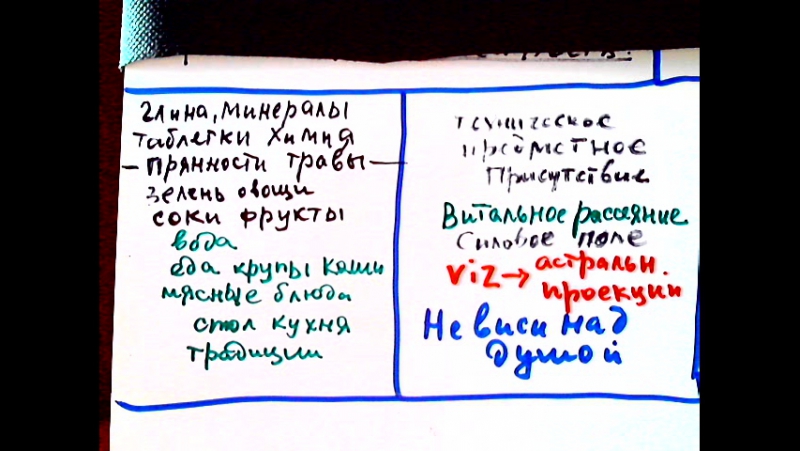 глина, минералы
таблетки химия
— прянности травы —
зелень овощи
соки фрукты
вода
еда крупы каши
мясные блюда
стол кухня
традиции
предметное
Присутствие
Витальное рассеяние
Силовое поле
viz → астральн.
проекции
Не виси над
душой